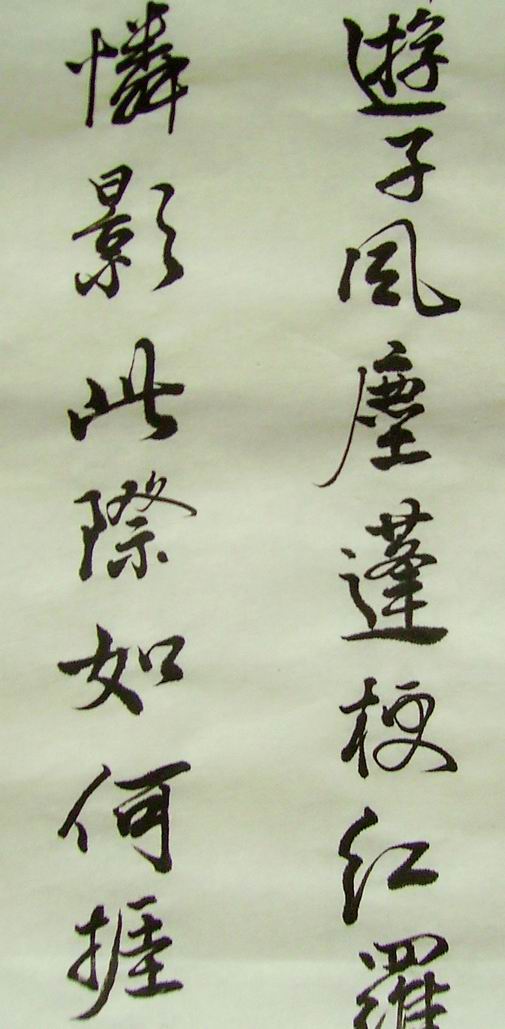 遊子風塵蓬梗紅羅
憐影此際如何捱